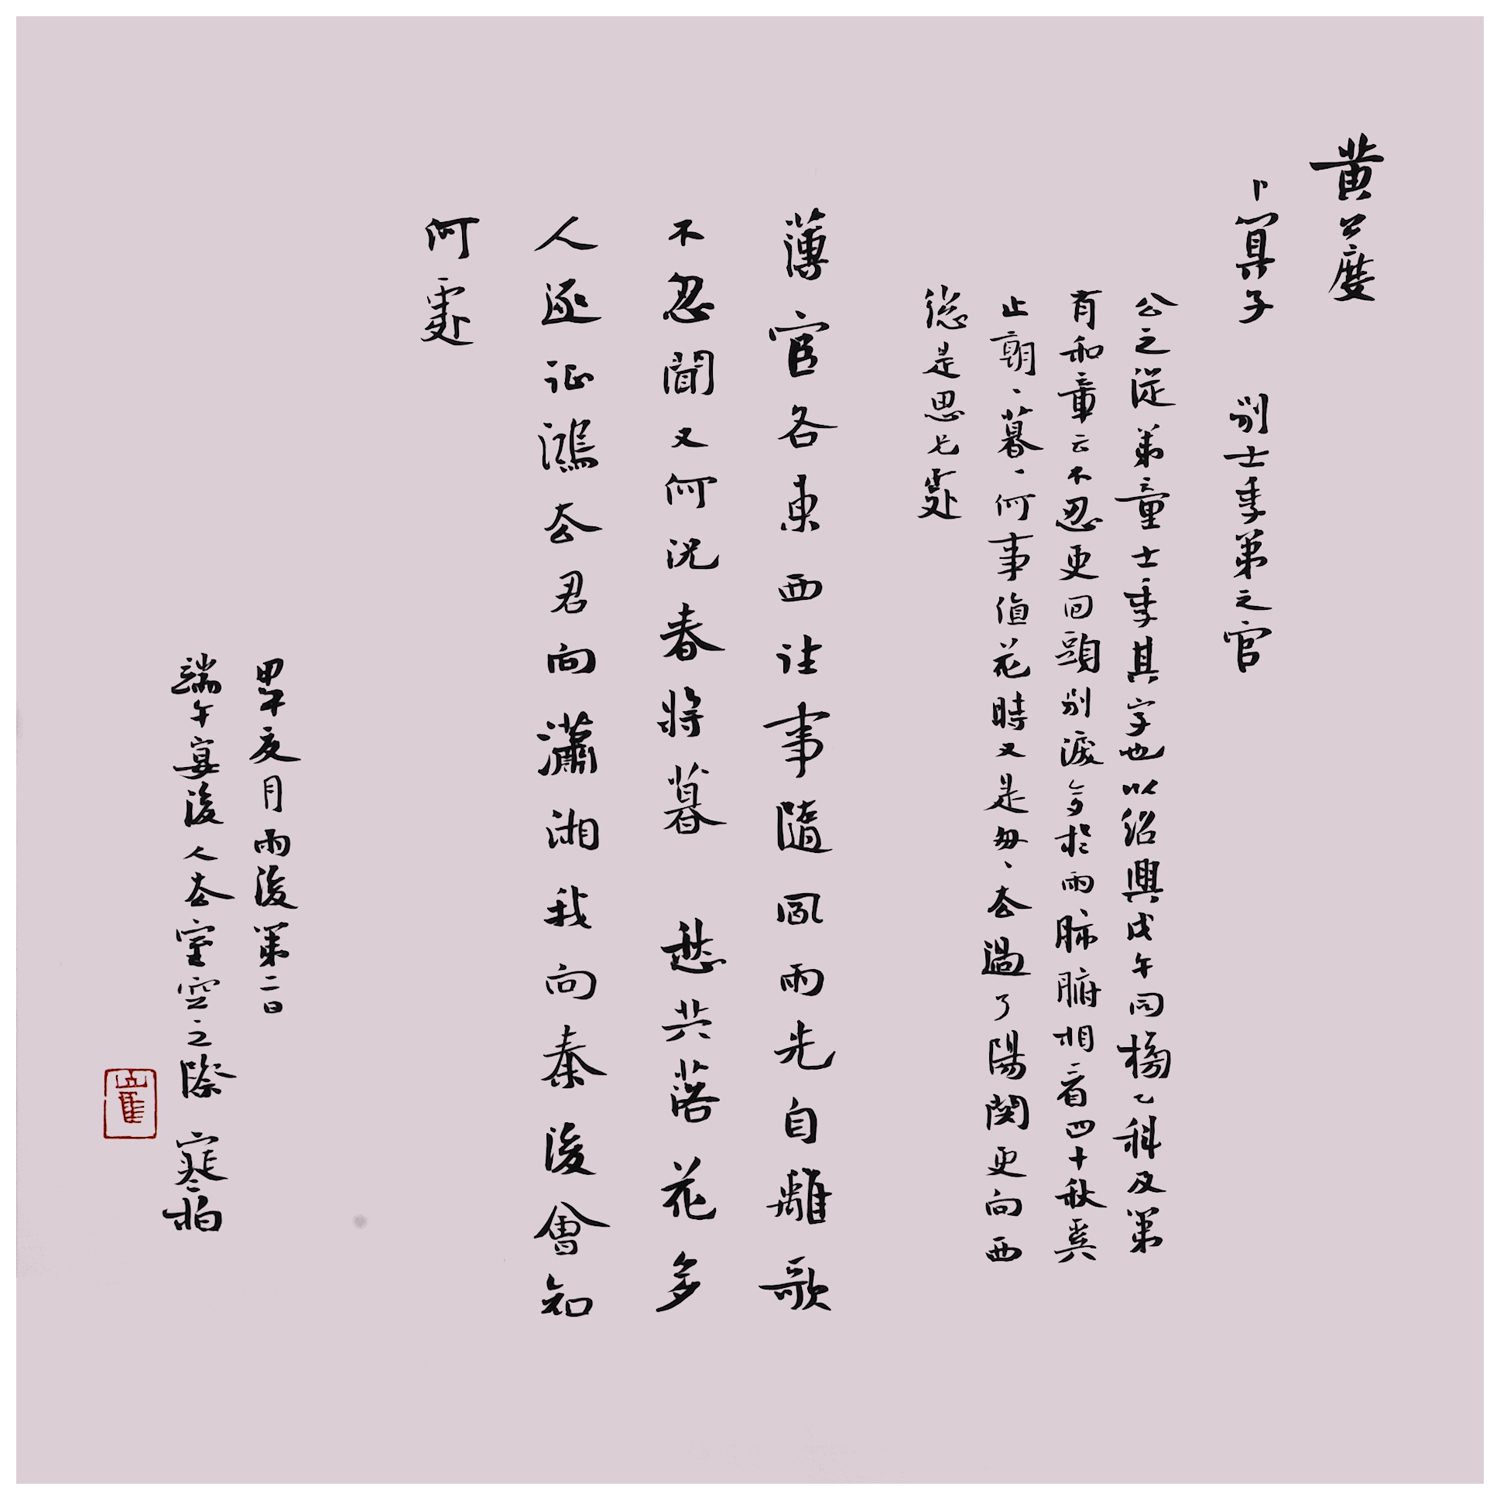 黄公度
卜算子 別士季弟之官
公之從弟童士季其字也以紹興戊午同榜乙科及第
有和章云不忍更回頭別淚多於雨肺腑相看四十秋奚
止朝、暮、何事值花時又是匆、去過了陽関更向西
總是思兄處
薄宦各東西往事隨風雨先自離歌
不忍聞又何況春將暮 愁共落花多
人逐征鴻去君向瀟湘我向秦後會知
何處
甲午夏月雨後第二日
端午宴後人去室空之際 寒柏
崔